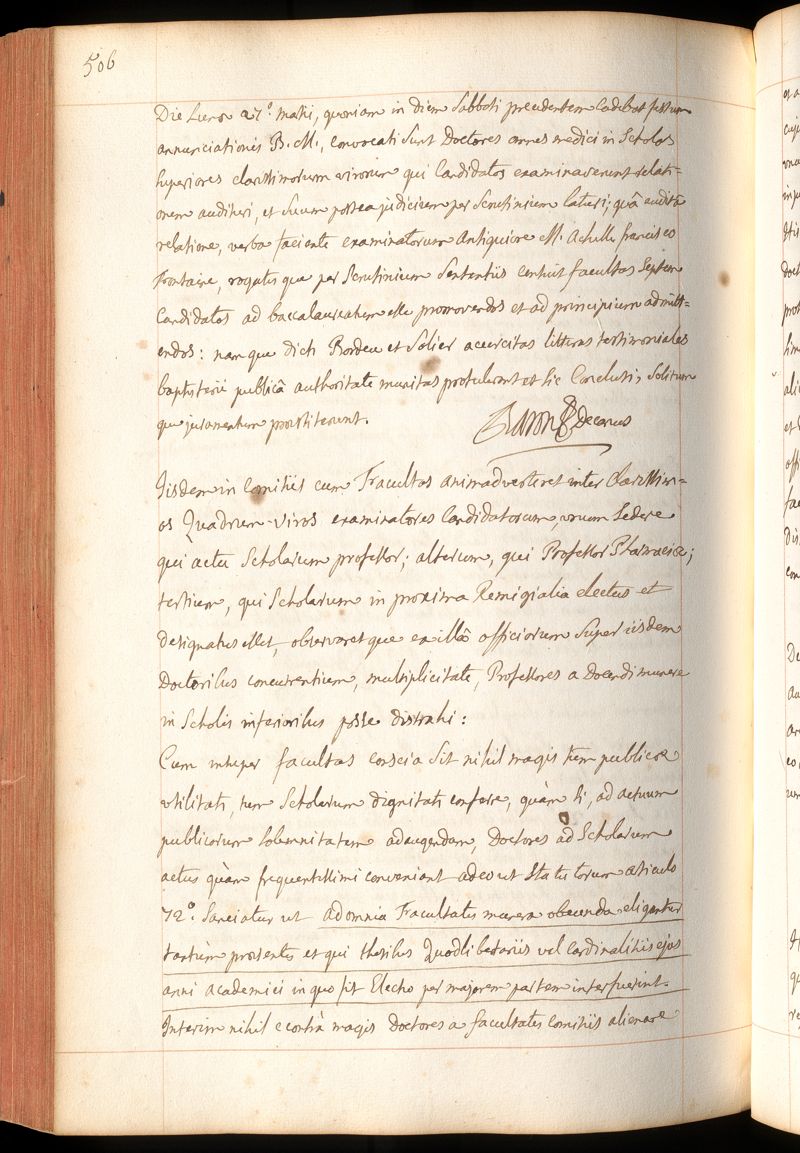 506
Die Lunæ 27.° Martii, quoniam in diem Sabbati præcedentem cadebat festum
annunciationis B. M., convocati sunt Doctores omnes medici in Scholas
superiores clarissimorum virorum qui Candidatos examinaverunt relati-
onem audituri, et suum postea judicium per Scrutinium laturi; quâ auditâ
relatione, verba faciente examinatorum antiquiore M. Achille francisco
Fontaine, rogatis que per Scrutinium Sententiis censuit facultas Septem
Candidatos ad baccalaureatum esse promovendos et ad principium admitt-
endos: nam que dicti Bordeu et Solier litteras testimoniales
baptisterii publicâ authoritate munitas protulerant et sic Conclusi, Solitum
que juramentum præstiterunt.
Baron decanus
Iisdem in Comitiis cum Facultas animadverteret inter Clarissim-
os Quadrum-viros examinatores Candidatorum, unum Sedere
qui actu Scholarum professor; alterum, qui Professor Pharmaciæ;
tertium, qui Scholarum in proxima Remigialia electus et
designatus esset, observaret que ex illâ officiorum Super iisdem
Doctoribus concurrentium, multiplicitate, Professores a Docendi munere
in Scholis inferioribus posse distrahi:
Cum insuper facultas conscia Sit nihil magis tum publicæ
utilitati, tum Scholarum dignitati conferre, quàm si, ad actuum
publicorum Solemnitatem adaugendam, Doctores ad Scholarum
actus quàm frequentissimi conveniant adeo ut Statutorum articulo
72.° Sanciatur ut ad omnia Facultatis munera obeunda eligantur
tantùm præsentes et qui thesibus Quodlibetariis vel Cardinalitiis ejus
anni academici in quo fit Electio per majorem partem interfuerint.
Interim nihil e contrà magis Doctores a facultatis Comitiis alienare